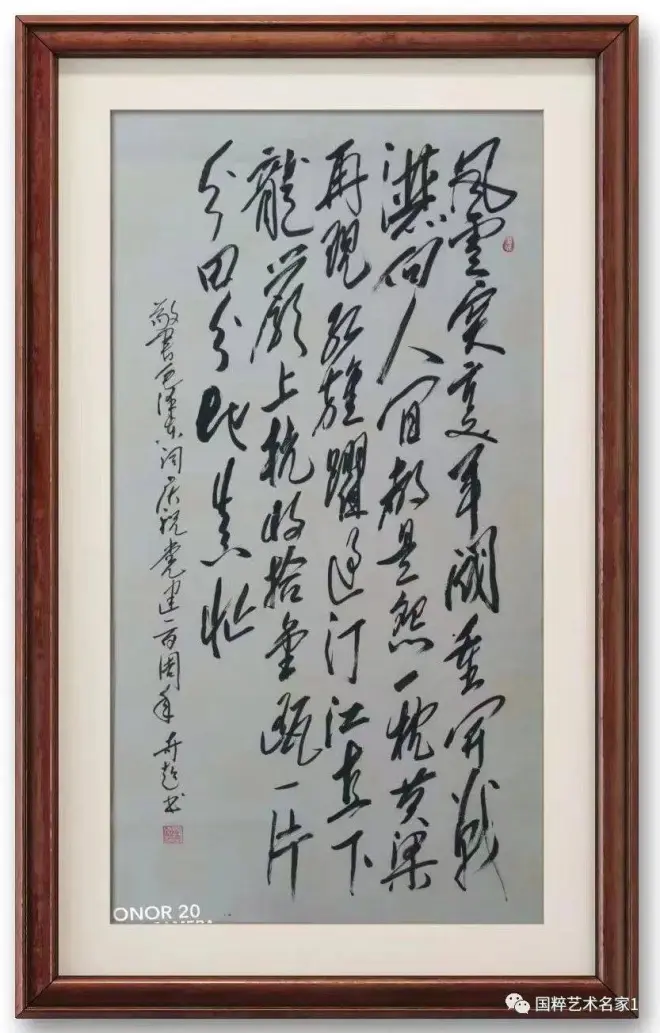 風雲突变军閥重開戰
灑向人间都是怨一枕黄梁
再現红旗躍過汀江直下
龍巖上杭收拾金甌一片
分田分地真忙
敬書毛泽东词庆祝党建一百周年 书
ONOR 20
CAMERA
国粹艺术名家1